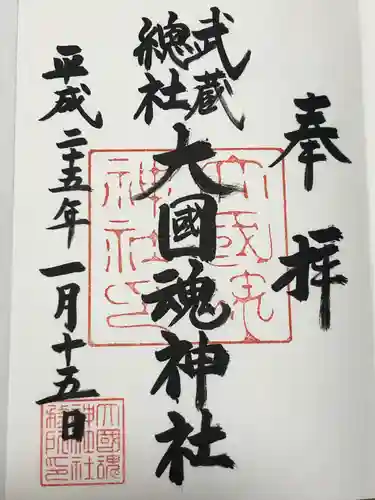 奉拝
武蔵
總社
大國魂神社
平成二十五年一月十五日
大國魂
神社之印
大國魂
神社社
務所印